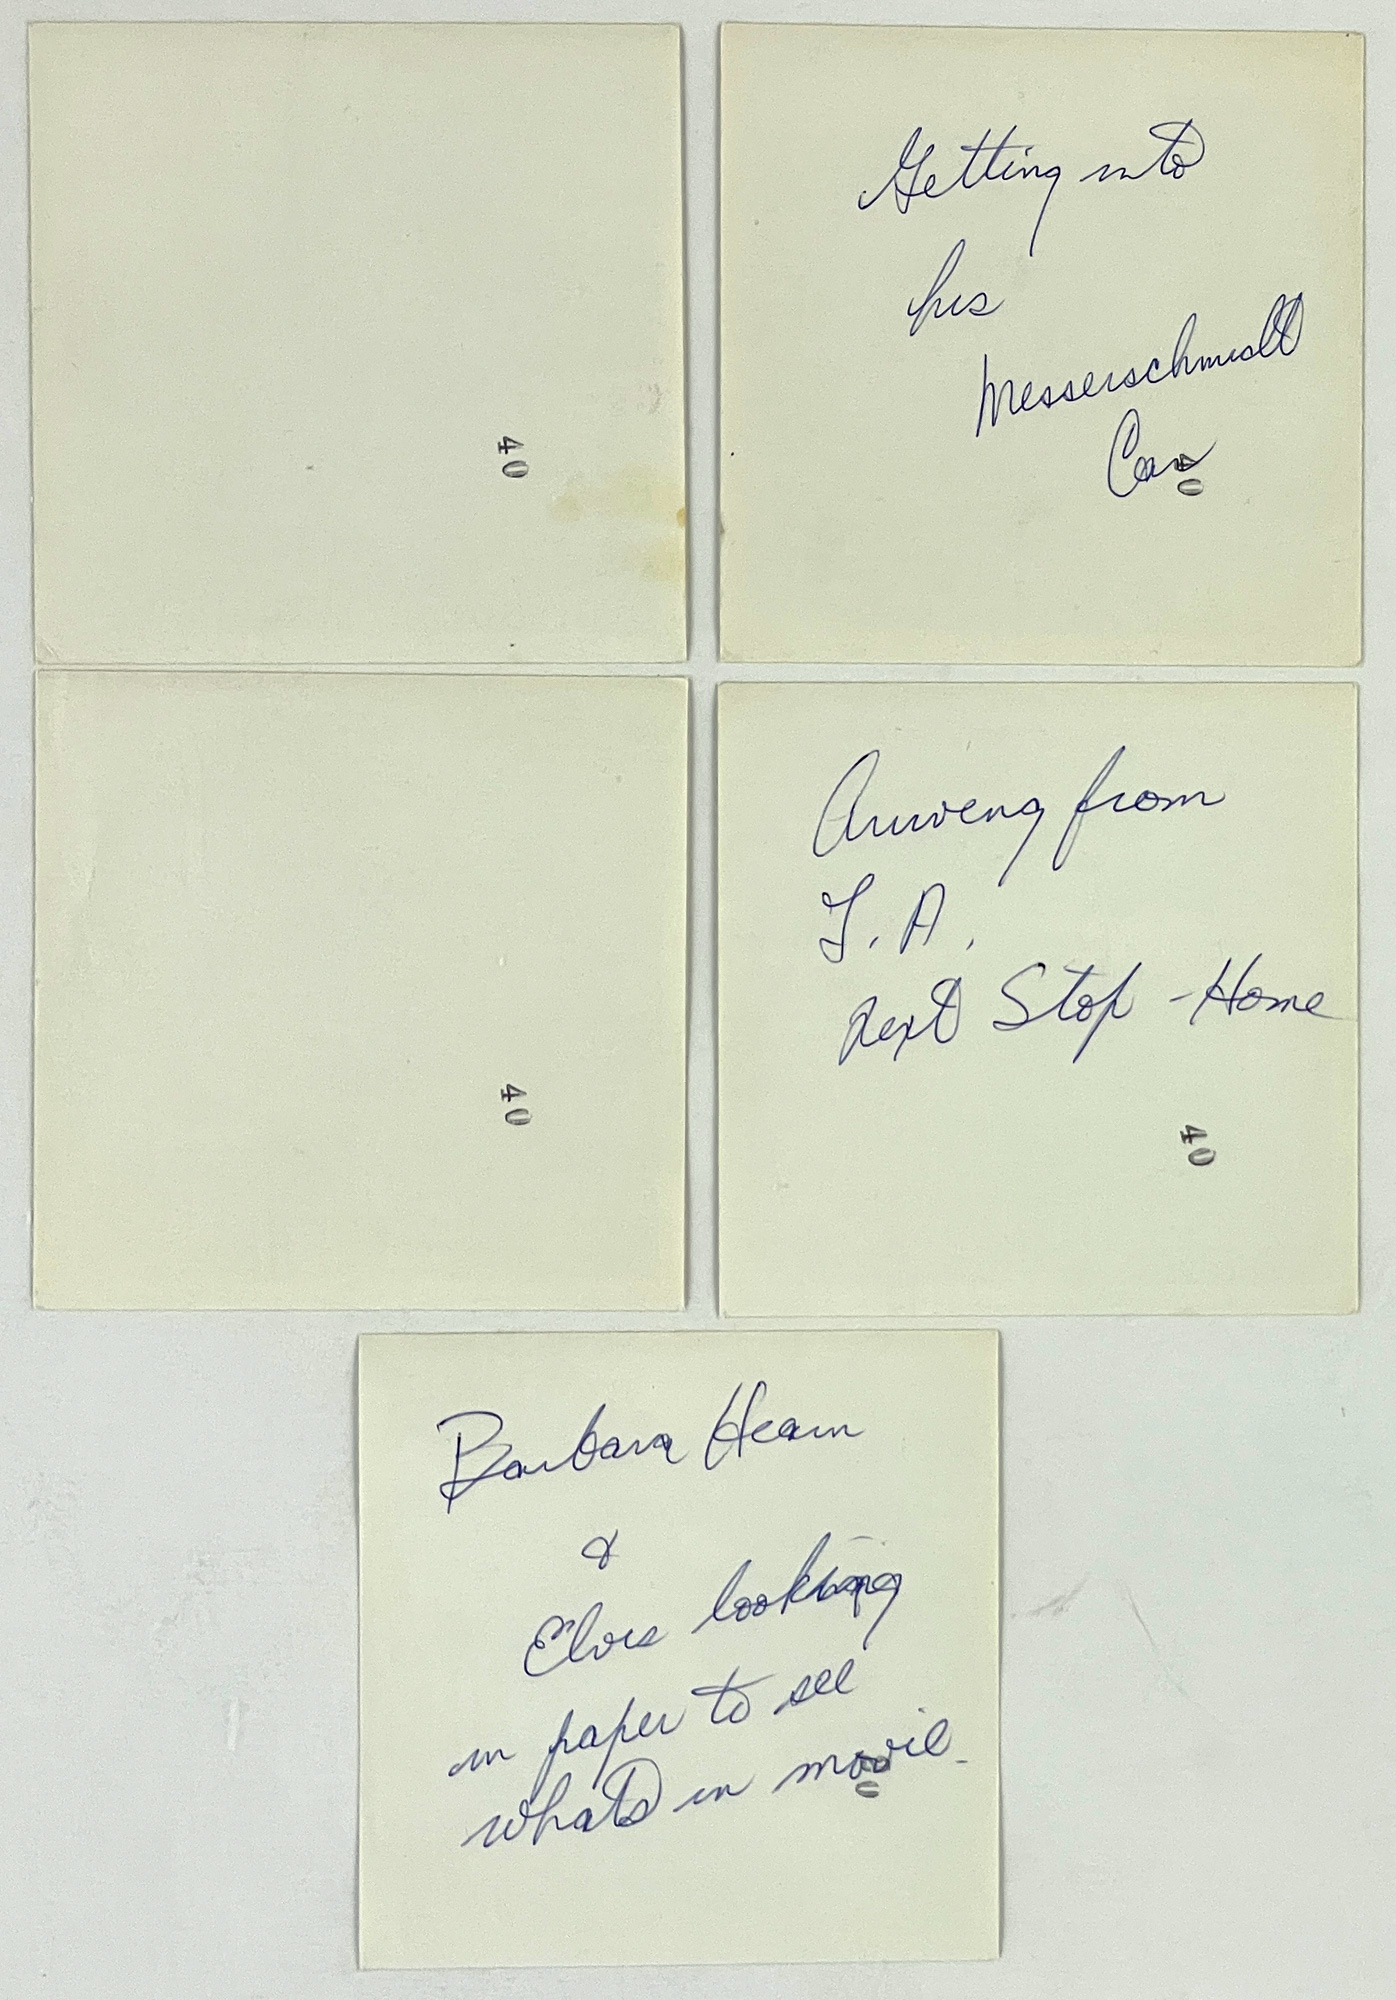 40
Getting into
his
Messerschmidt
Car
40
40
Arriveng from
L.A.
next Stop - Home
40
Barbara Hearn
&
Elvis looking
in paper to see
whats in movie.
40